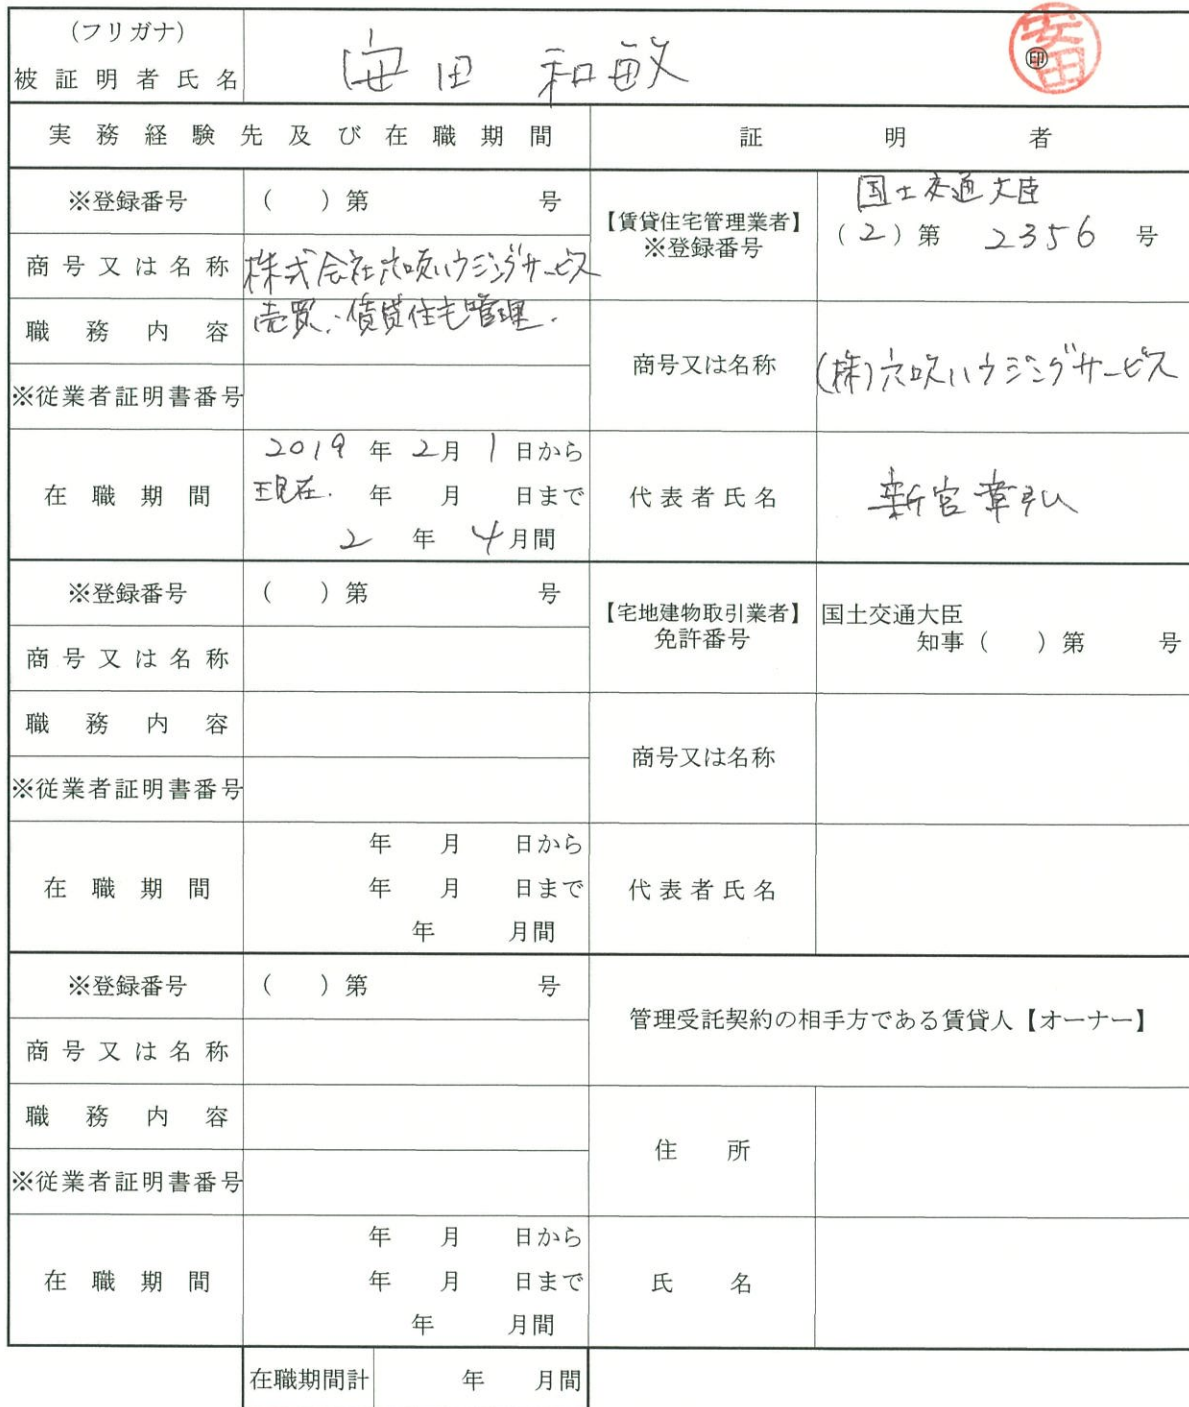 (フリガナ)
被証明者氏名 安田 和敏 ㊞ 安田
実務経験先及び在職期間 証明者
※登録番号 ( )第 号
商号又は名称 株式会社穴吹ハウジングサービス
職務内容 売買、賃貸住宅管理.
※従業者証明書番号
在職期間 2019年2月1日から
現在. 年 月 日まで
2年4月間
【賃貸住宅管理業者】
※登録番号
国土交通大臣
(2)第 2356 号
商号又は名称 (株)穴吹ハウジングサービス
代表者氏名 新宮章弘
※登録番号 ( )第 号
商号又は名称
職務内容
※従業者証明書番号
在職期間 年 月 日から
年 月 日まで
年 月間
【宅地建物取引業者】
免許番号
国土交通大臣
知事( )第 号
商号又は名称
代表者氏名
※登録番号 ( )第 号
商号又は名称
職務内容
※従業者証明書番号
在職期間 年 月 日から
年 月 日まで
年 月間
管理受託契約の相手方である賃貸人【オーナー】
住所
氏名
在職期間計 年 月間